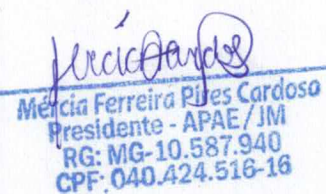 Mércia Ferreira Pires Cardoso
Presidente - APAE/JM
RG: MG-10.587.940
CPF: 040.424.516-16